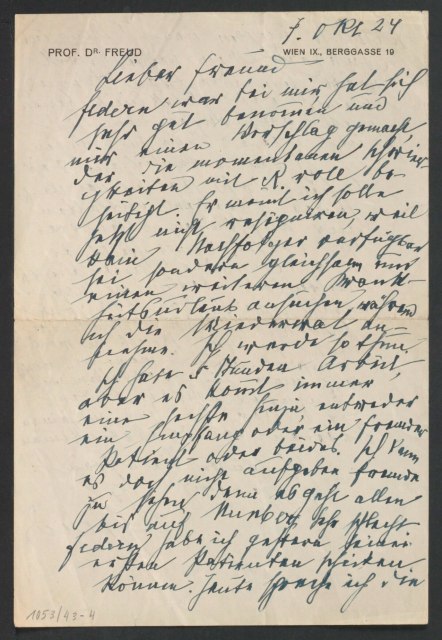 7. Okt. 24
PROF. DR. FREUD WIEN IX., BERGGASSE 19
Lieber Freund
Federn war bei mir, hat sich
sehr gut benommen und
mir einen Vorschlag gemacht,
der die momentanen Schwier-
igkeiten mit R. voll be-
seitigt. Er meint ich solle
jetzt nicht resignieren, weil
kein Nachfolger verfügbar
sei sondern gleichsam um
einen weiteren Krank-
heitsurlaub ansuchen, während
ich die Wiederwahl an-
nehme. Ich werde so thun.
Ich habe 5 Stunden Arbeit,
aber es kommt immer
eine sechste hinzu, entweder
ein Empfang oder ein fremder
Patient oder beides. Ich kann
es doch nicht aufgeben Fremde
zu sehen, denn es geht allen
bis auf sehr schlecht
Federn habe ich gestern seinen
ersten Patienten schicken
können. Heute spreche ich die
1053/43-4